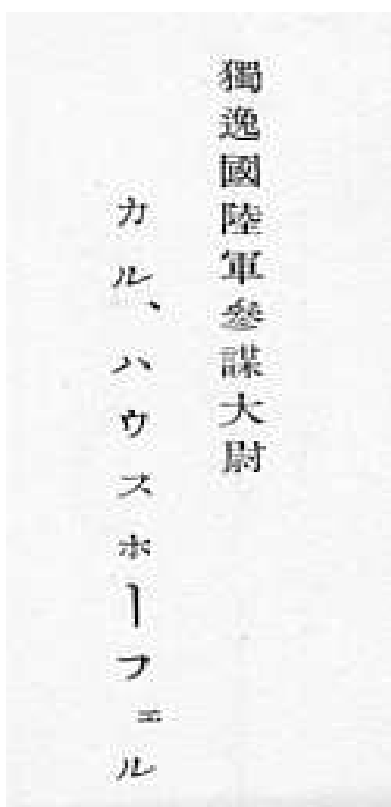 獨逸國陸軍參謀大尉
カル、ハウスホーフェル